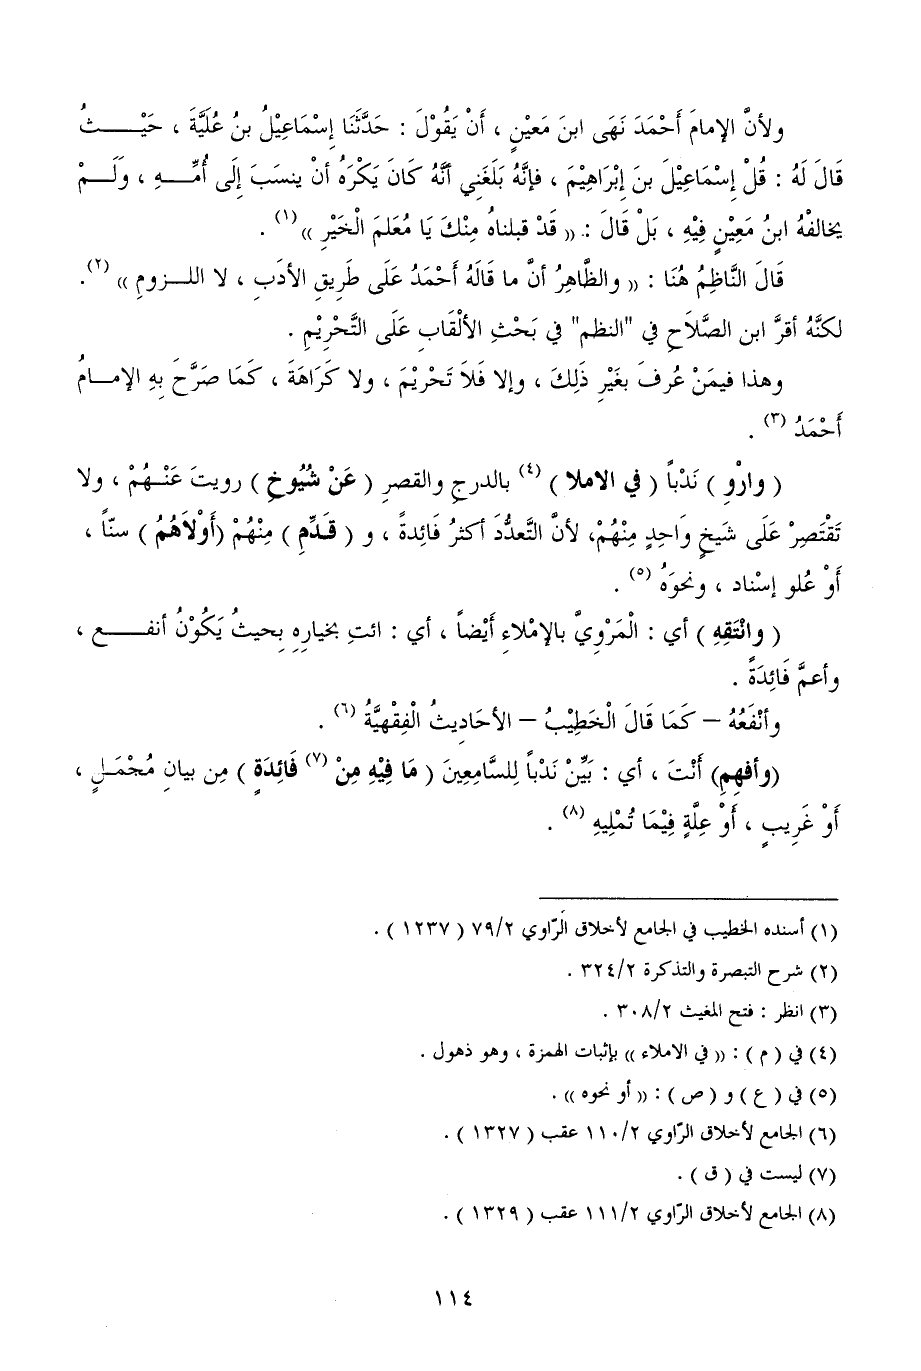 ولأنَّ الإمامَ أَحْمَدَ نَهَى ابنَ مَعيْنٍ ، أَنْ يَقُوْلَ : حَدَّثَنَا إِسْمَاعِيْلُ بنُ عُلَيَّةَ ، حَيْـــثُ
قَالَ لَهُ : قُلْ إِسْمَاعِيْلَ بنَ إِبْرَاهِيْمَ ، فإنَّهُ بَلَغَنِي أنَّهُ كَانَ يَكْرَهُ أنْ ينسَبَ إِلَى أُمِّـــهِ ، ولَـــمْ
يخالفْهُ ابنُ مَعِيْنٍ فِيْهِ ، بَلْ قَالَ : (( قَدْ قبلناهُ مِنْكَ يَا مُعَلمَ الْخَيْرِ )) (١) .
قَالَ النَّاظِمُ هُنَا : (( والظَّاهِرُ أنَّ ما قَالَهُ أَحْمَدُ عَلَى طَرِيقِ الأدَبِ ، لا اللـــزومِ )) (٢).
لكنَّهُ أقرَّ ابن الصَّلاَحِ في "النظم" في بَحْثِ الألْقَاب عَلَى التَّحْرِيْمِ .
وهذا فيمَنْ عُرفَ بغَيْرِ ذَلِكَ ، وإلا فَلاَ تَحْرِيْمَ ، ولا كَرَاهَةَ ، كَمَا صَرَّحَ بِهِ الإمـــامُ
أَحْمَدُ (٣) .
( وارْوِ ) نَدْباً ( في الاملا ) (٤) بالدرجِ والقصرِ ( عَنْ شُيُوخِ ) رويتَ عَنْـــهُمْ ، ولا
تَقْتَصِرْ عَلَى شيخٍ وَاحِدٍ مِنْهُمْ، لأنَّ التَّعدُّدَ أكثرُ فَائِدةً ، و ( قَدِّمِ ) مِنْهُمْ (أَوْلاَهُمُ ) سنّاً ،
أَوْ عُلو إسْناد ، ونحوَهُ (٥) .
( وانْتَقِهِ ) أي : الْمَرْوِيَّ بالإِمْلاءِ أَيْضاً ، أي : ائتِ بخيارِهِ بِحيثُ يَكُوْنُ أنفـــع ،
وأعمَّ فَائِدَةً .
وأنْفَعُهُ – كَمَا قَالَ الْخَطِيْبُ – الأحَاديثُ الْفِقْهيَّةُ (٦) .
(وأفهِمِ) أَنْتَ ، أي : بَيِّنْ نَدْباً لِلسَّامِعِينَ ( مَا فِيْهِ مِنْ (٧) فَائِدَةٍ ) مِن بيانِ مُجْمَـــلٍ ،
أوْ غَرِيبٍ ، أَوْ عِلَّةٍ فِيْمَا تُمْلِيهِ (٨) .
(١) أسنده الخطيب في الجامع لأخلاق الرّاوي ٧٩/٢ ( ١٢٣٧ ) .
(٢) شرح التبصرة والتذكرة ٣٢٤/٢ .
(٣) انظر : فتح المغيث ٣٠٨/٢ .
(٤) في ( م ) : (( في الاملاء )) بإثبات الهمزة ، وهو ذهول .
(٥) في ( ع ) و ( ص ) : (( أو نحوه )) .
(٦) الجامع لأخلاق الرّاوي ١١٠/٢ عقب ( ١٣٢٧ ) .
(٧) ليست في ( ق ) .
(٨) الجامع لأخلاق الرّاوي ١١١/٢ عقب ( ١٣٢٩ ) .
١١٤